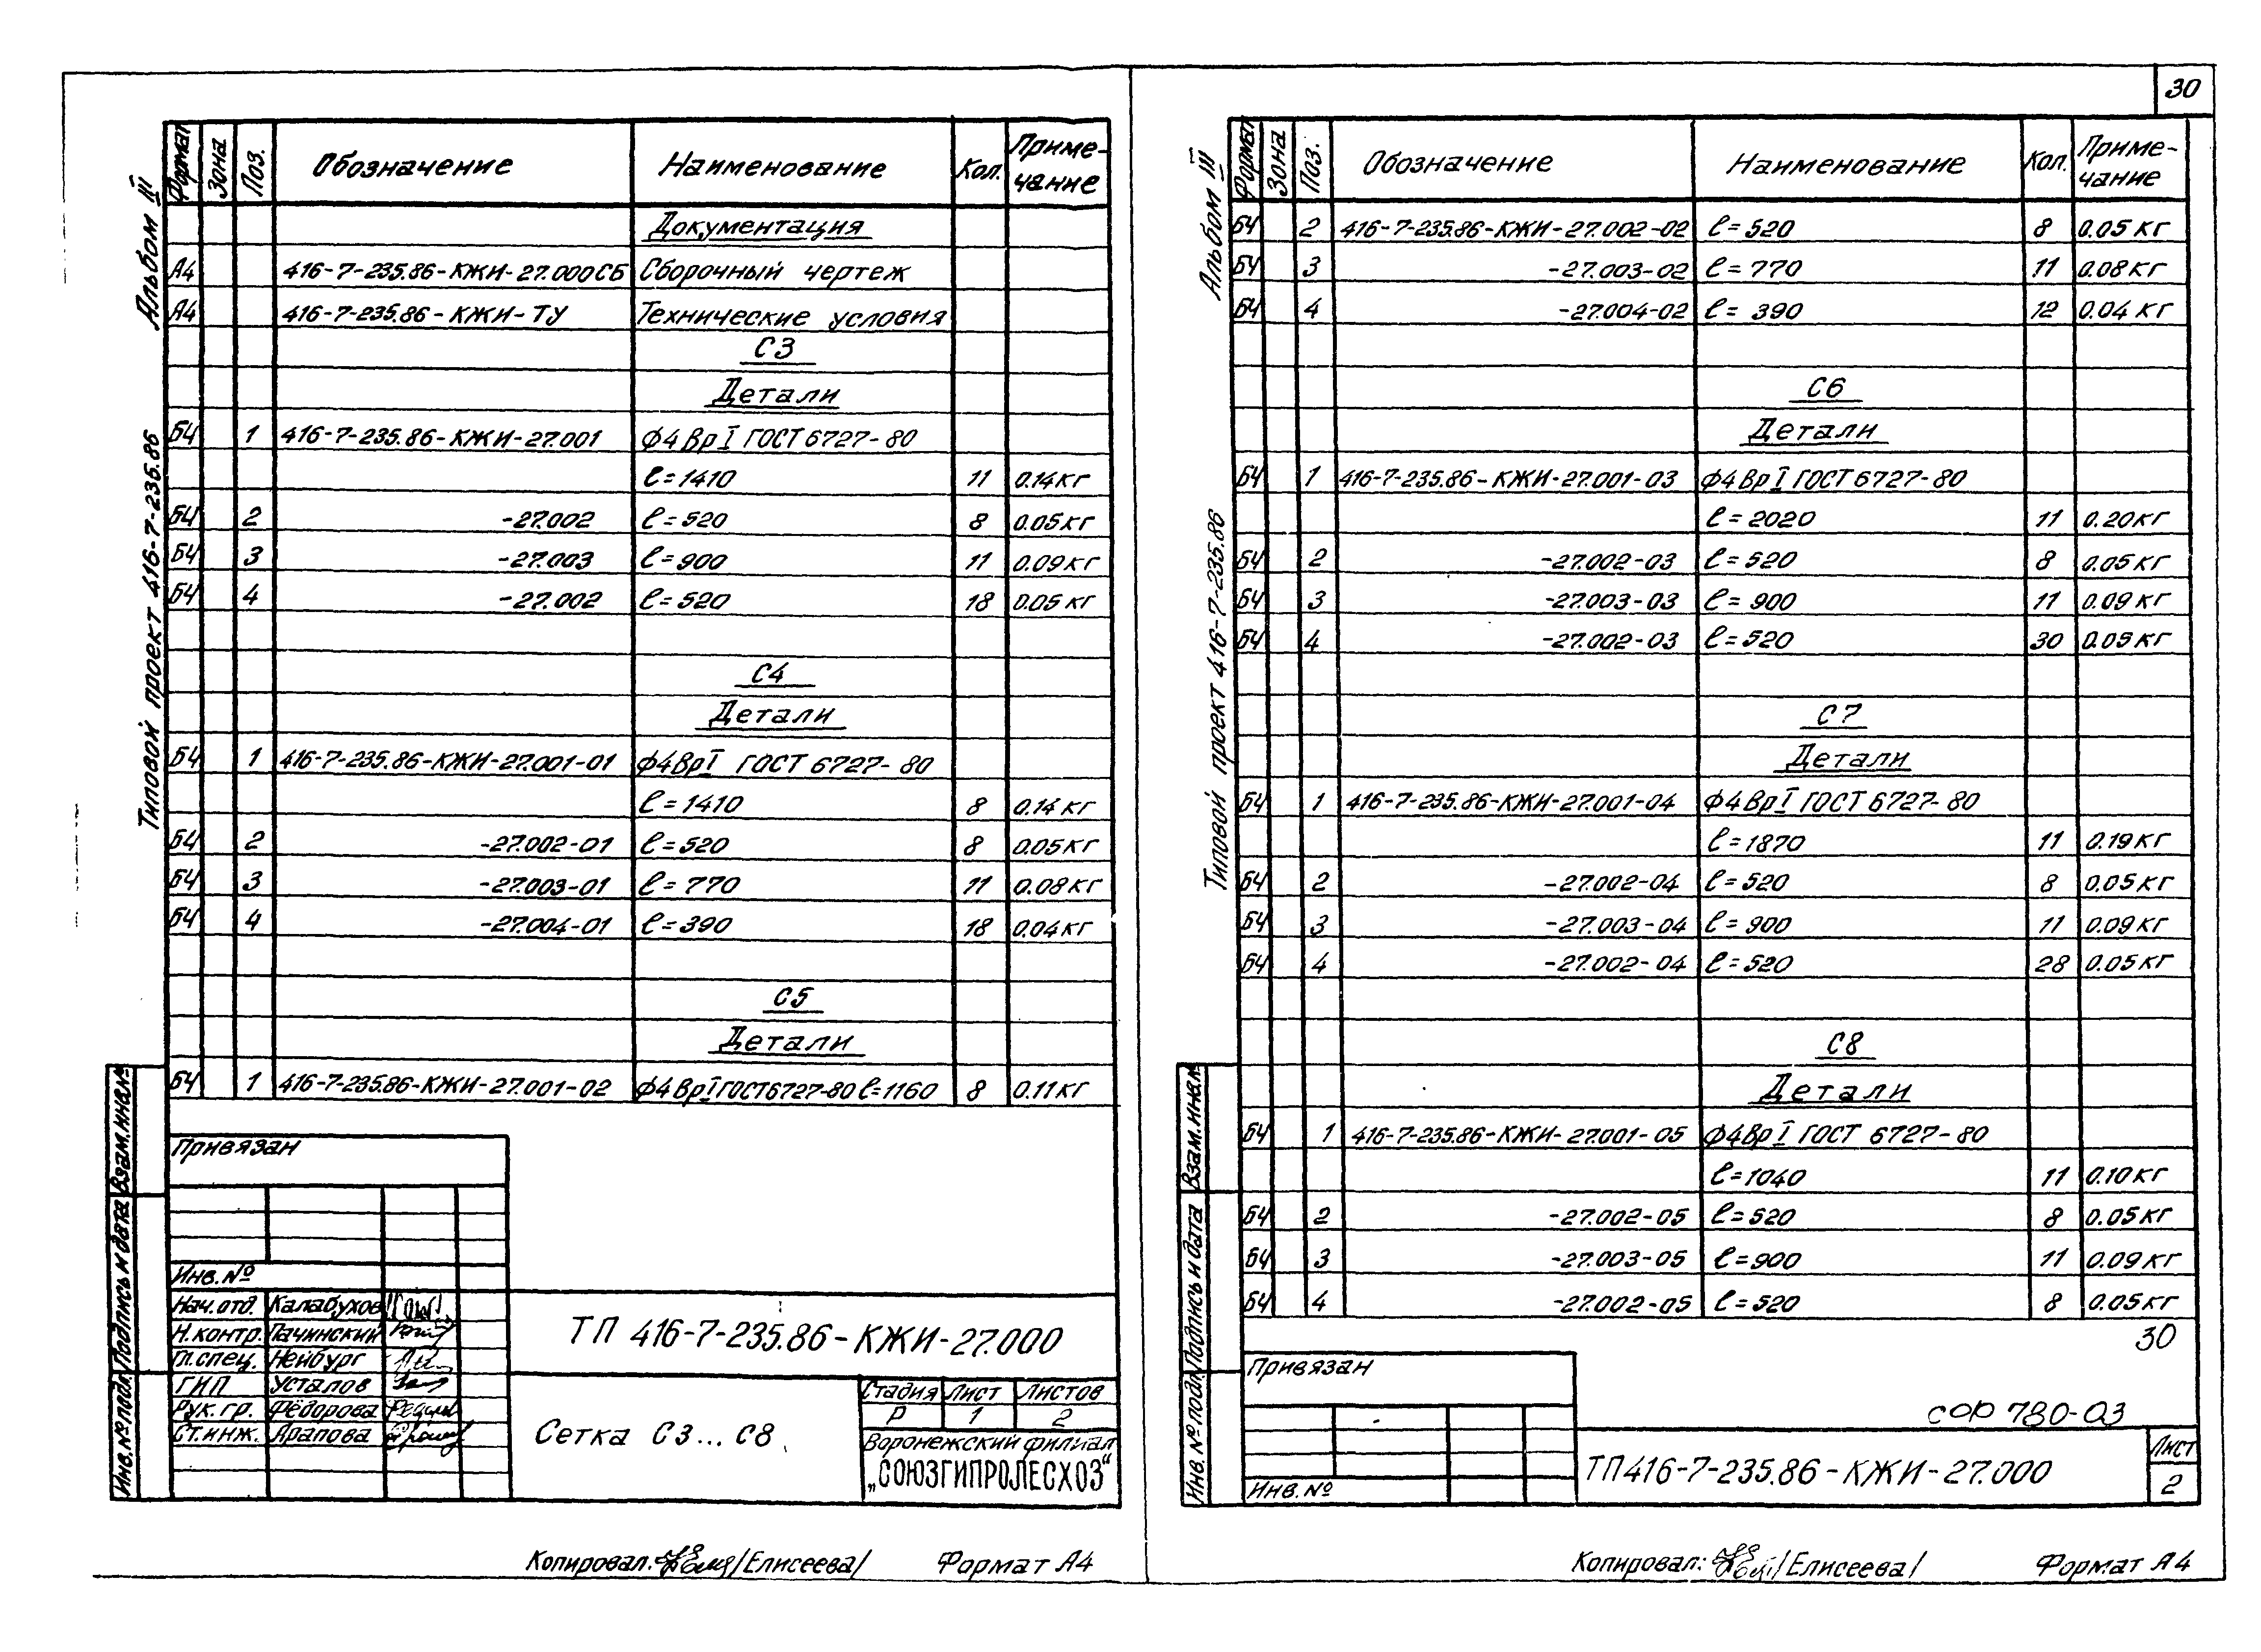 30
Альбом III
Типовой проект 416-7-235.86
Формат Зона Поз. Обозначение Наименование Кол. Приме-чание
Документация
А4 416-7-235.86-КЖИ-27.000СБ Сборочный чертеж
А4 416-7-235.86-КЖИ-ТУ Технические условия
С3
Детали
БЧ 1 416-7-235.86-КЖИ-27.001 ф4ВрI ГОСТ 6727-80
ℓ=1410 11 0.14кг
БЧ 2 -27.002 ℓ=520 8 0.05кг
БЧ 3 -27.003 ℓ=900 11 0.09кг
БЧ 4 -27.002 ℓ=520 18 0.05кг
С4
Детали
БЧ 1 416-7-235.86-КЖИ-27.001-01 ф4ВрI ГОСТ 6727-80
ℓ=1410 8 0.14кг
БЧ 2 -27.002-01 ℓ=520 8 0.05кг
БЧ 3 -27.003-01 ℓ=770 11 0.08кг
БЧ 4 -27.004-01 ℓ=390 18 0.04кг
С5
Детали
БЧ 1 416-7-235.86-КЖИ-27.001-02 ф4ВрI ГОСТ6727-80 ℓ=1160 8 0.11кг
Взам.инв.№
Подпись и дата
Инв.№ подл.
Привязан
Инв.№
Нач.отд. Калабухов
Н.контр. Пачинский
Гл.спец. Нейбург
ГИП Усталов
Рук.гр. Фёдорова
Ст.инж. Арапова
ТП 416-7-235.86-КЖИ-27.000
Сетка С3...С8
Стадия Лист Листов
Р 1 2
Воронежский филиал
„СОЮЗГИПРОЛЕСХОЗ“
Копировал: /Елисеева/ Формат А4
Альбом III
Типовой проект 416-7-235.86
Формат Зона Поз. Обозначение Наименование Кол. Приме-чание
БЧ 2 416-7-235.86-КЖИ-27.002-02 ℓ=520 8 0.05кг
БЧ 3 -27.003-02 ℓ=770 11 0.08кг
БЧ 4 -27.004-02 ℓ=390 12 0.04кг
С6
Детали
БЧ 1 416-7-235.86-КЖИ-27.001-03 ф4ВрI ГОСТ 6727-80
ℓ=2020 11 0.20кг
БЧ 2 -27.002-03 ℓ=520 8 0.05кг
БЧ 3 -27.003-03 ℓ=900 11 0.09кг
БЧ 4 -27.002-03 ℓ=520 30 0.05кг
С7
Детали
БЧ 1 416-7-235.86-КЖИ-27.001-04 ф4ВрI ГОСТ 6727-80
ℓ=1870 11 0.19кг
БЧ 2 -27.002-04 ℓ=520 8 0.05кг
БЧ 3 -27.003-04 ℓ=900 11 0.09кг
БЧ 4 -27.002-04 ℓ=520 28 0.05кг
С8
Детали
БЧ 1 416-7-235.86-КЖИ-27.001-05 ф4ВрI ГОСТ 6727-80
ℓ=1040 11 0.10кг
БЧ 2 -27.002-05 ℓ=520 8 0.05кг
БЧ 3 -27.003-05 ℓ=900 11 0.09кг
БЧ 4 -27.002-05 ℓ=520 8 0.05кг
30
Взам.инв.№
Подпись и дата
Инв.№ подл.
Привязан
Инв.№
сФ 780-03
ТП416-7-235.86-КЖИ-27.000
Лист
2
Копировал: /Елисеева/ Формат А4